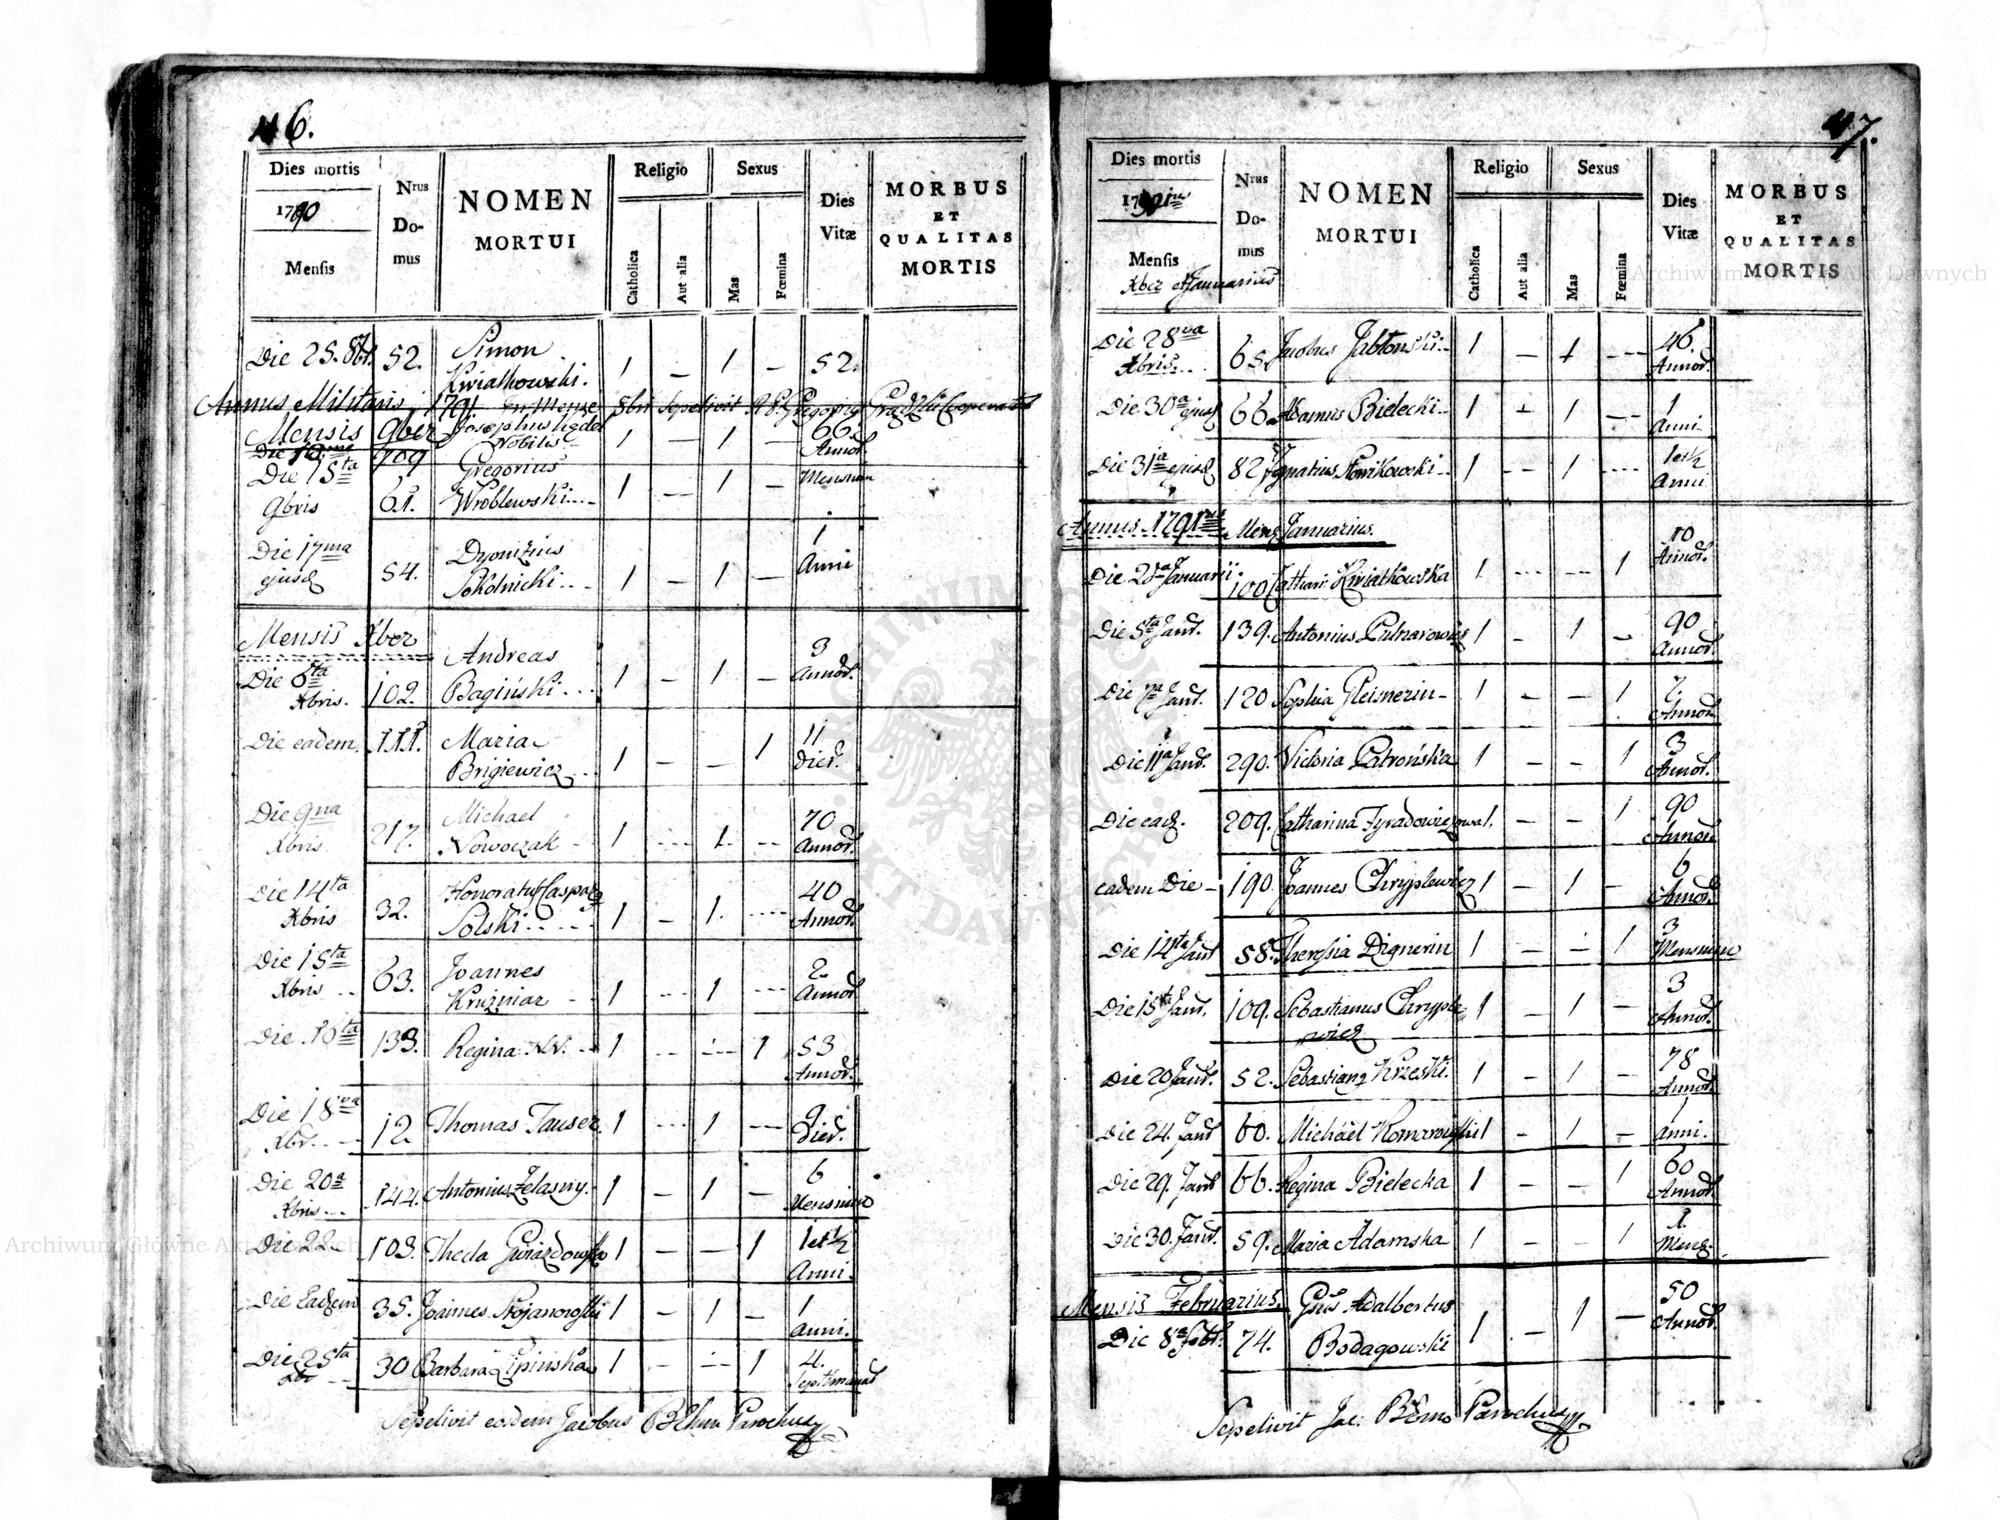 46.
Dies mortis
1790
Mensis
Nrus
Do-
mus
NOMEN
MORTUI
Religio
Catholica
Aut alia
Sexus
Mas
Fœmina
Dies
Vitæ
MORBUS
ET
QUALITAS
MORTIS
Die 25. 8br. 52. Simon 1 — 1 — 52.
Kwiatkowski.
Annus Militaris 1791. In Mense 8bri Sepelivit
Mensis 9ber Josephus 1 — 1 — 66
109 Nobilis Annor.
Die 15ta Gregorius Mensium
9bris 61. Wroblewski 1 — 1 —
Die 17ma Dyonizius 1
ejusd 54. Sokolnicki 1 — 1 — Anni
Mensis Xber
Andreas 3
Die 6ta Annor.
Xbris. 102. Bagiński 1 — 1 —
Die eadem. 111. Maria 1 11
Brigiewicz 1 — — Dier.
Die 9na Michael 70
Xbris 217. Nowoczak 1 — 1 — Annor.
Die 14ta Honoratus Caspar 40
Xbris 32. Solski 1 — 1 — Annor.
Die 15ta 63. Joannes 2
Xbris Kruzniar 1 — 1 — Annor.
Die 16ta 133. Regina N.N. 1 — — 1 53
Annor.
Die 18va 9
Xbr. 12. Thomas Tauser. 1 — 1 — Dier.
Die 20a 6
Xbris 144. Antonius Zelasny. 1 — 1 — Mensium
Die 22. 103. Thecla Gwiazdowska 1 — — 1 1 et ½
Anni.
Die Eadem 35. Joannes Stojanowski 1 — 1 — 1
Anni.
Die 25ta 30 Barbara Lipińska 1 — — 1 4.
Septimanar
Sepelivit eodem Jacobus Böhm Parochus
47.
Dies mortis
Mensis
Xber et Januarius
Nrus
Do-
mus
NOMEN
MORTUI
Religio
Catholica
Aut alia
Sexus
Mas
Fœmina
Dies
Vitæ
MORBUS
ET
QUALITAS
MORTIS
Die 28va 46.
Xbris 65. Jacobus Jabłonski 1 — 1 — Annor.
Die 30a ejusd 66. Adamus Bielecki 1 — 1 — 1
Anni
Die 31a ejusd 82 Ignatius Nowikowski 1 — 1 — 1 et ½
Anni
Annus 1791mus Mens Januarius.
10
Annor.
Die 2da Januarii. 100 Cathari Kwiatkowska 1 — — 1
Die 5ta Janr. 139. Antonius Putnarowicz 1 — 1 — 90
Annor.
Die 7a Janr. 120 Sophia Gleisnerin 1 — — 1 7
Annor.
Die 11a Janr. 290. Victoria Patrońska 1 — — 1 3
Annor.
Die ead. 209. Catharina Tyradowiczowa 1. — — 1 90
Annor.
eadem Die 190. Joannes Chryplewicz 1 — 1 — 6
Annor.
Die 14ta Janr 58. Theresia Dignerin 1 — — 1 3
Mensium
Die 15ta Janr. 109. Sebastianus Chryple 1 — 1 — 3
wicz Annor.
Die 20 Janr. 52. Sebastianus Krzeski. 1 — 1 — 78
Annor.
Die 24. Janr 60. Michael Komarnicki 1 — 1 — 1
Anni.
Die 29. Janr 66. Regina Bielecka 1 — — 1 60
Annor.
Die 30. Janr. 59. Maria Adamska 1 — — 1 1.
Mens.
Mensis Februarius. Adalbertus 50
Die 8a Febr. 74. Bodagowski 1 — 1 — Annor.
Sepelivit Jac: Böhm Parochus
Archiwum Główne Akt Dawnych